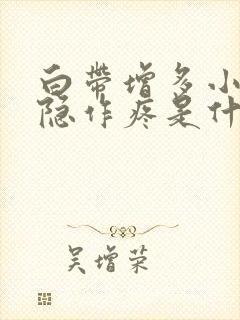 白带增多小
隐作疼是什
吴增荣